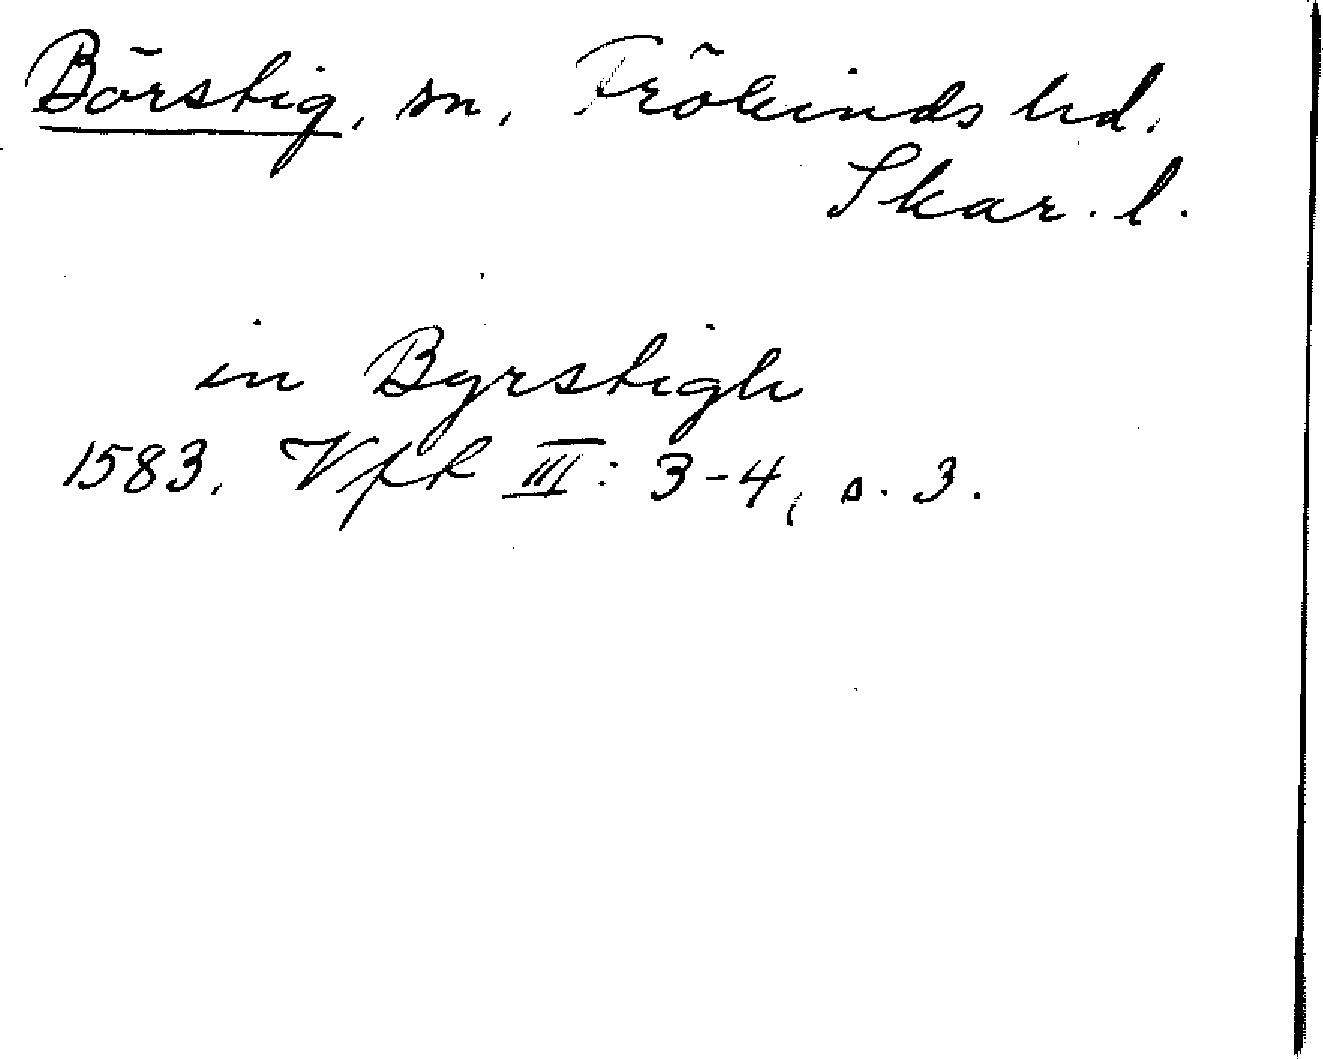 Börstig, sn, Frökinds hd.
Skar. l.
in Byrstigh
1583. Vfk III: 3-4, s. 3.